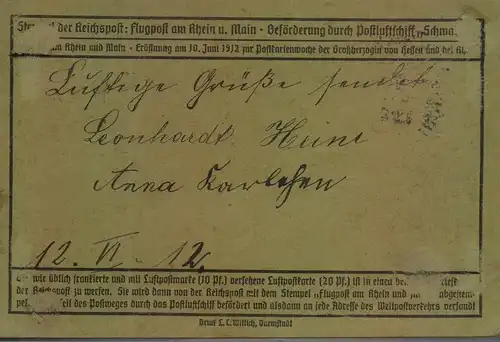 der Reichspost: Flugpost am Rhein u. Main - Beförderung durch Postluftschiff „Schwa
am Rhein und Main - Eröffnung am 10. Juni 1912 zur Postkartenwoche der Großherzogin von Hessen und bei Rh
Luftige Grüße sendet
Leonhardt Heine
Anna Karlchen
12. VI. 12.
wie üblich frankierte und mit Luftpostmarke (10 Pf.) versehene Luftpostkarte (20 Pf.) ist in einen be
der Reichspost zu werfen. Sie wird dann von der Reichspost mit dem Stempel „Flugpost am Rhein und abgestem-
pel eil des Postweges durch das Postluftschiff befördert und alsdann an jede Adresse des Weltpostverkehrs versandt
Druck L. C. Wittich, Darmstadt